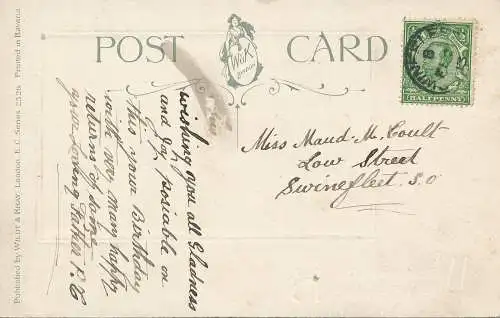 POST CARD
W&K
LONDON
HALFPENNY
wishing you all Gladness
and Joy posicable on
this your Birthday
with over many happy
returns of same
your loving Father P. C
Miss Maud. M. Coult
Low Street
Swinefleet S.O
Published by WILDT & KRAY, London, E.C. Series 2526 Printed in Bavaria